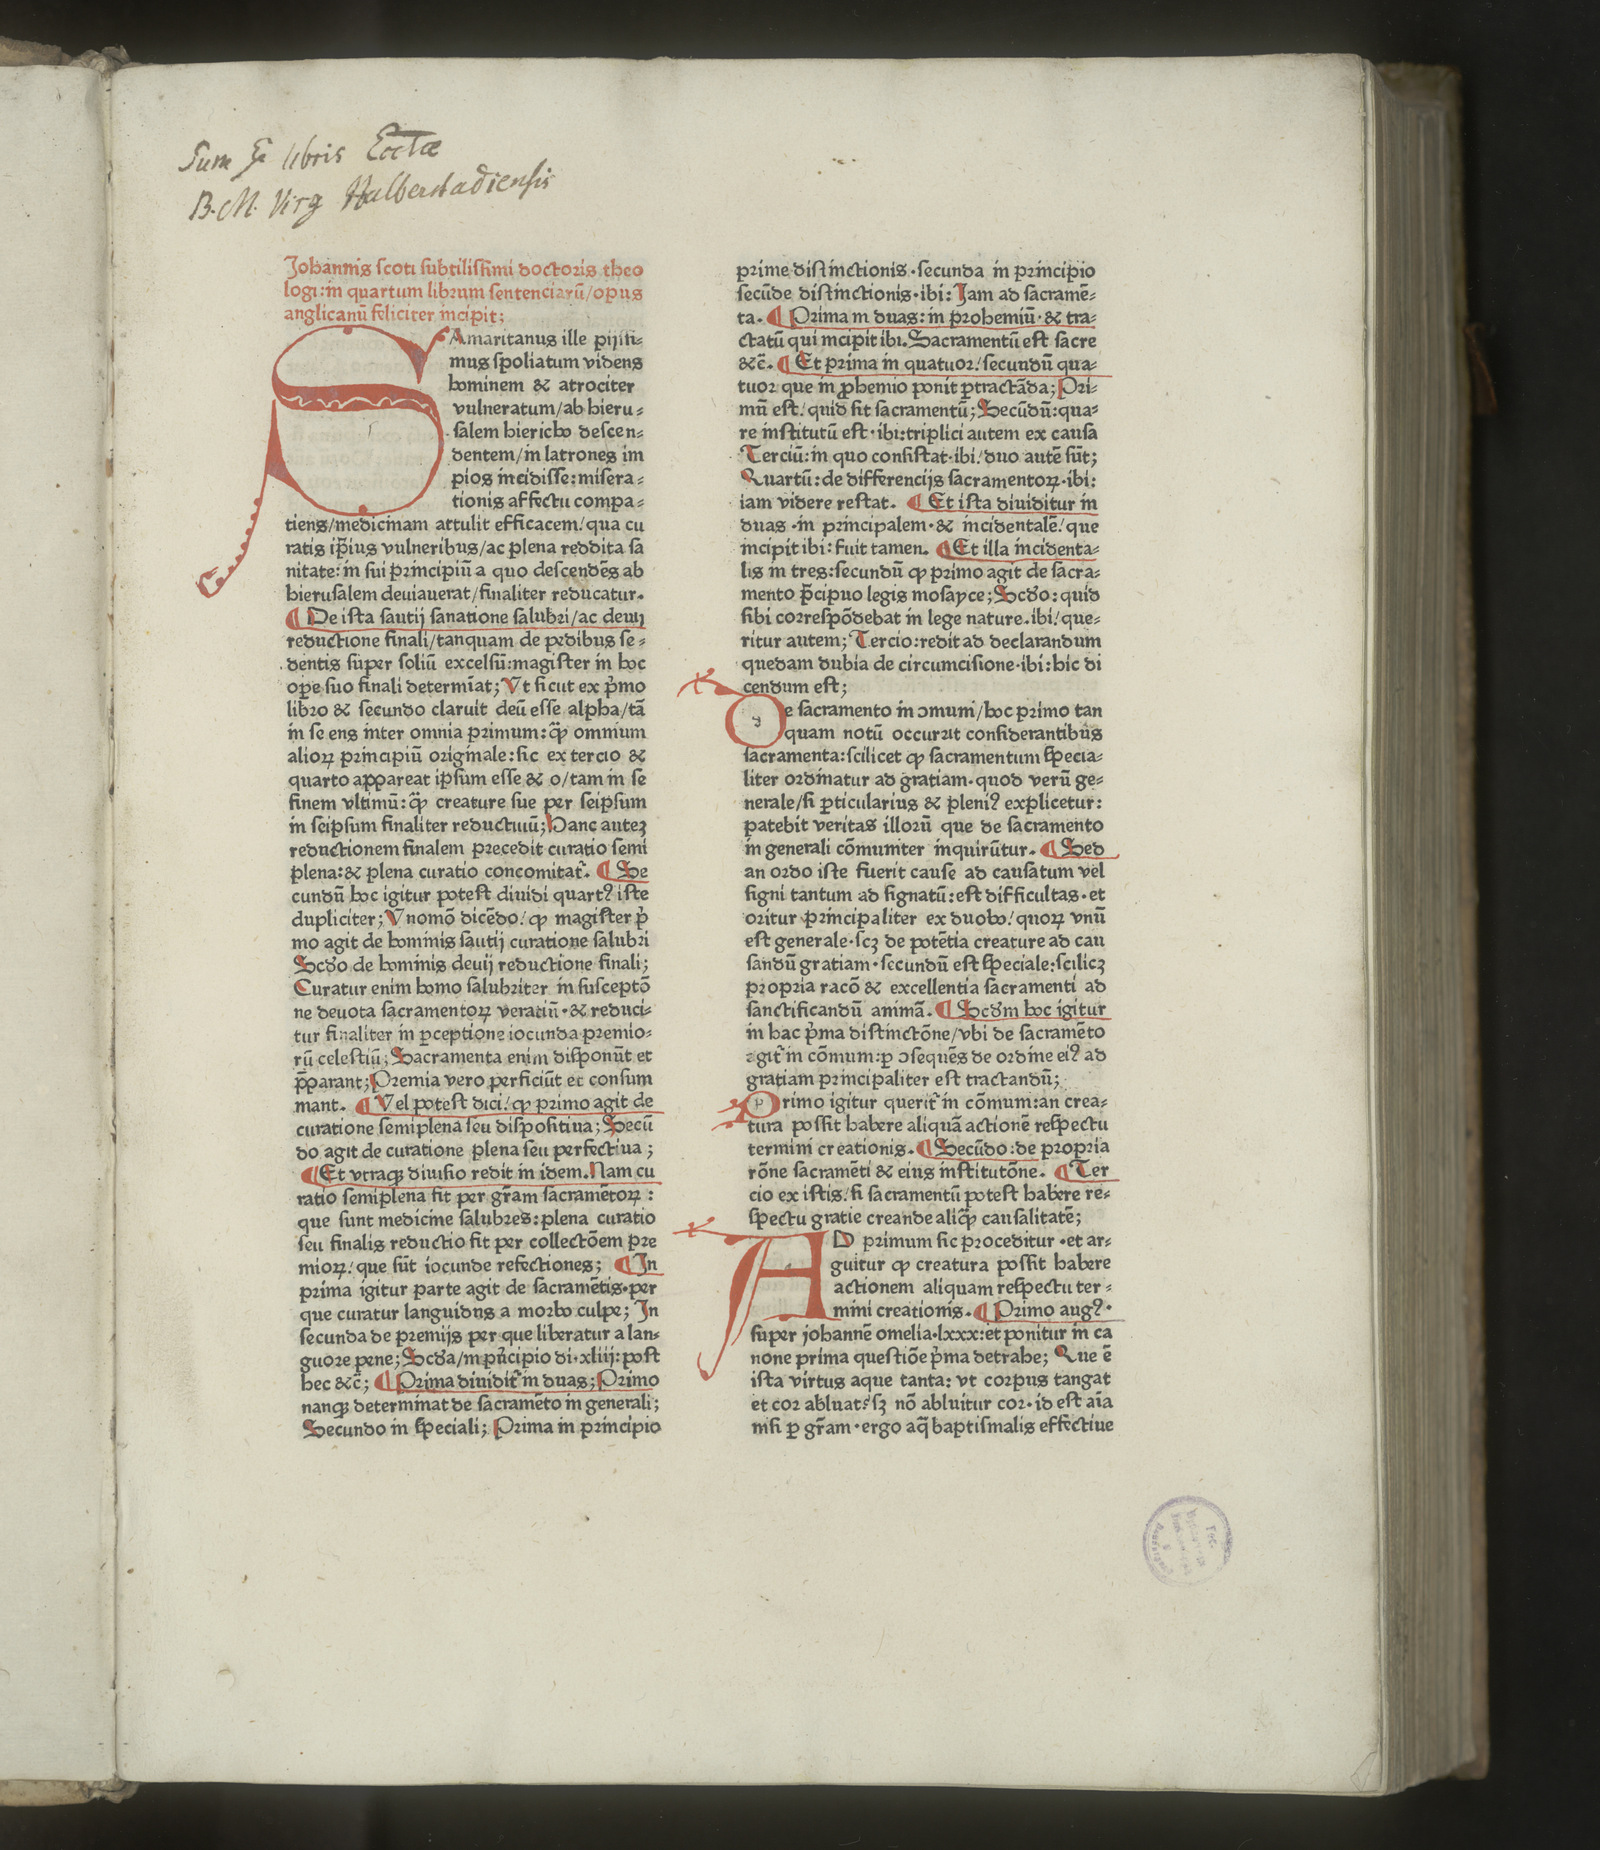 Sum Ex libris Eccłæ
B. M. Virg Halberstadiensis
Johannis scoti subtilissimi doctoris theo
logi: in quartum librum sentenciarū/opus
anglicanū feliciter incipit;
SAmaritanus ille pijssi-
mus spoliatum videns
hominem & atrociter
vulneratum/ab hieru-
salem hiericho descen-
dentem/in latrones im
pios incidisse: misera-
tionis affectu compa-
tiens/medicinam attulit efficacem/qua cu
ratis ip̄ius vulneribus/ac plena reddita sa
nitate: in sui principiū a quo descendēs ab
hierusalem deuiauerat/finaliter reducatur.
¶ De ista sautij sanatione salubri/ac deuij
reductione finali/tanquam de pedibus se-
dentis super soliū excelsū: magister in hoc
ope suo finali determīat; Vt sicut ex pͥmo
libro & secundo claruit deū esse alpha/tā
in se ens inter omnia primum: qͣꝫ omnium
alioꝝ principiū originale: sic ex tercio &
quarto appareat ipsum esse & o/tam in se
finem vltimū: qͣꝫ creature sue per seipsum
in seipsum finaliter reductiuū; Hanc auteꝫ
reductionem finalem precedit curatio semi
plena: & plena curatio concomitat᷑. ¶ Se
cundū hoc igitur potest diuidi quartꝰ iste
dupliciter; Vnomō dicēdo/ ꝙ magister pͥ
mo agit de hominis sautij curatione salubri
Scd̄o de hominis deuij reductione finali;
Curatur enim homo salubriter in susceptō
ne deuota sacramentoꝝ veratiū · & reduci-
tur finaliter in ꝑceptione iocunda premio-
rū celestiū; Sacramenta enim disponūt et
p̄parant; Premia vero perficiūt et consum
mant. ¶ Vel potest dici/ ꝙ primo agit de
curatione semiplena seu dispositiua; Secū
do agit de curatione plena seu perfectiua;
¶ Et vtraqꝫ diuisio redit in idem. Nam cu
ratio semiplena fit per gr̄am sacramētoꝝ:
que sunt medicine salubres: plena curatio
seu finalis reductio fit per collectōem pre
mioꝝ/ que sūt iocunde refectiones; ¶ In
prima igitur parte agit de sacramētis · per
que curatur languidus a morbo culpe; In
secunda de premijs per que liberatur a lan-
guore pene; Scd̄a/in pͥncipio di · xliij: post
hec &c̄; ¶ Prima diuidit᷑ in duas; Primo
nanqꝫ determinat de sacramēto in generali;
Secundo in speciali; Prima in principio
prime distinctionis · secunda in principio
secūde distinctionis · ibi: Jam ad sacramē-
ta. ¶ Prima in duas: in prohemiū · & tra-
ctatū qui incipit ibi. Sacramentū est sacre
&c̄. ¶ Et prima in quatuor/ secundū qua-
tuor que in ꝓhemio ponit ꝑtractāda; Pri-
mū est/ quid sit sacramentū; Secūdū: qua-
re institutū est · ibi: triplici autem ex causa
Terciū: in quo consistat · ibi/ duo autē sūt;
Quartū: de differencijs sacramentoꝝ · ibi:
iam videre restat. ¶ Et ista diuiditur in
duas · in principalem · & incidentalē/ que
incipit ibi: fuit tamen. ¶ Et illa incidenta-
lis in tres: secundū ꝙ primo agit de sacra-
mento p̄cipuo legis mosayce; Scd̄o: quid
sibi correspōdebat in lege nature · ibi/ que-
ritur autem; Tercio: redit ad declarandum
quedam dubia de circumcisione · ibi: hic di
cendum est;
De sacramento in ꝯmuni/hoc primo tan
quam notū occurrit considerantibus
sacramenta: scilicet ꝙ sacramentum specia-
liter ordinatur ad gratiam · quod verū ge-
nerale/si ꝑticularius & pleniꝰ explicetur:
patebit veritas illorū que de sacramento
in generali cōmuniter inquirūtur. ¶ Sed
an ordo iste fuerit cause ad causatum vel
signi tantum ad signatū: est difficultas · et
oritur principaliter ex duobꝰ/ quoꝝ vnū
est generale · scꝫ de potētia creature ad cau
sandū gratiam · secundū est speciale: scilicꝫ
propria racō & excellentia sacramenti ad
sanctificandū animā. ¶ Scd̄m hoc igitur
in hac pͥma distinctōne/vbi de sacramēto
agit᷑ in cōmum: ꝑ ꝯsequēs de ordine eiꝰ ad
gratiam principaliter est tractandū;
Primo igitur querit᷑ in cōmum: an crea-
tura possit habere aliquā actionē respectu
termini creationis. ¶ Secūdo: de propria
rōne sacramēti & eius institutōne. ¶ Ter
cio ex istis/ si sacramentū potest habere re-
spectu gratie creande aliqͣꝫ causalitatē;
AD primum sic proceditur · et ar-
guitur ꝙ creatura possit habere
actionem aliquam respectu ter-
mini creationis. ¶ Primo augꝰ ·
super johannē omelia · lxxx: et ponitur in ca
none prima questiōe pͥma detrahe; Que ē
ista virtus aque tanta: vt corpus tangat
et cor abluat: sꝫ nō abluitur cor · id est aīa
nisi ꝑ gr̄am · ergo aq̄ baptismalis effectiue